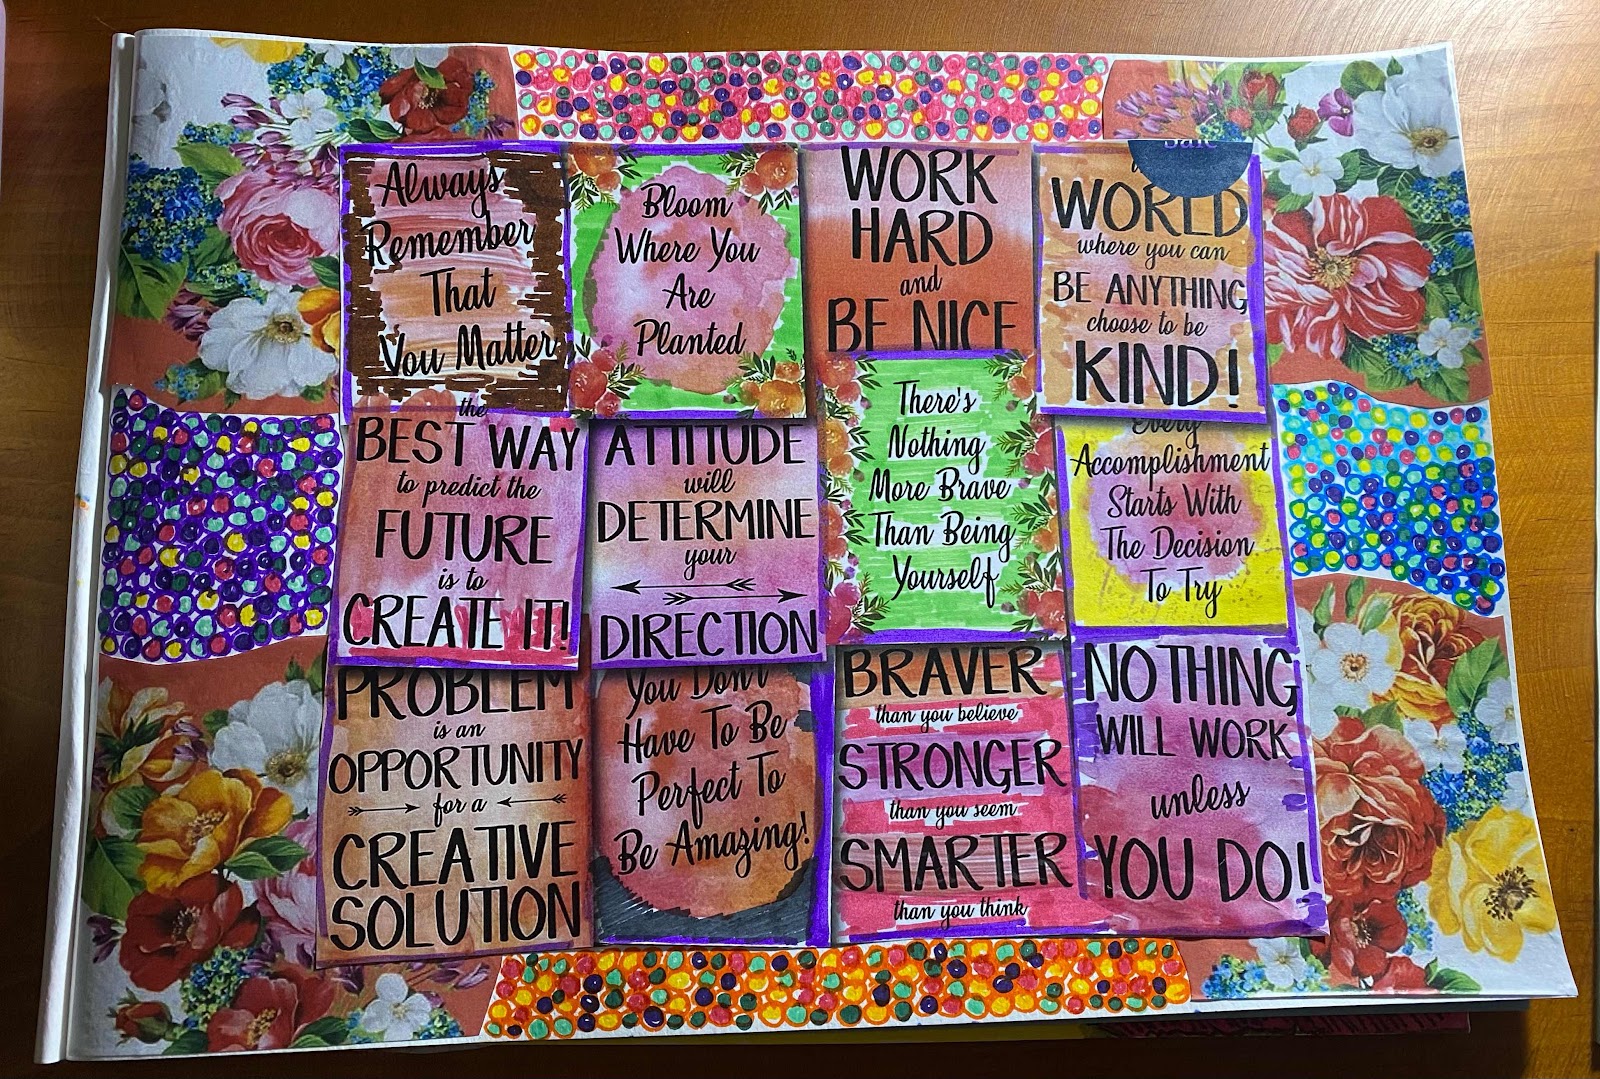 Always
Remember
That
You Matter
Bloom
Where You
Are
Planted
WORK
HARD
and
BE NICE
Sale
WORLD
where you can
BE ANYTHING
choose to be
KIND!
the
BEST WAY
to predict the
FUTURE
is to
CREATE IT!
ATTITUDE
will
DETERMINE
your
DIRECTION
There's
Nothing
More Brave
Than Being
Yourself
Every
Accomplishment
Starts With
The Decision
To Try
PROBLEM
is an
OPPORTUNITY
for a
CREATIVE
SOLUTION
You Don't
Have To Be
Perfect To
Be Amazing!
BRAVER
than you believe
STRONGER
than you seem
SMARTER
than you think
NOTHING
WILL WORK
unless
YOU DO!